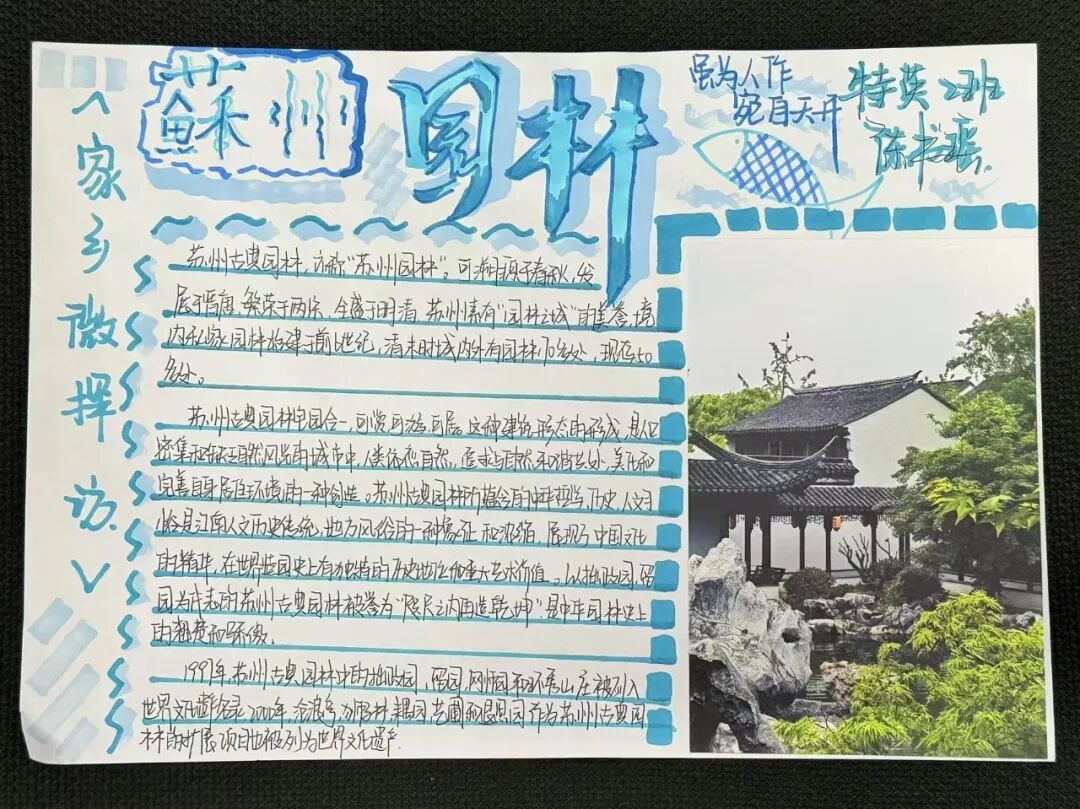 ︿家乡微探访﹀
蘇州
园林
虽为人作
宛自天开
特英2班
陈书瑶
苏州古典园林,亦称“苏州园林”。可溯源于春秋,发
展于晋唐,繁荣于两宋,全盛于明清。苏州素有“园林之城”的美誉,境
内私家园林始建于前6世纪,清末时城内外有园林170多处,现存50
多处。
苏州古典园林宅园合一,可赏,可游,可居,这种建筑形态的形成,是人口
密集和缺乏自然风光的城市中,人类依恋自然,追求与自然和谐共处,美化和
完善自身居住环境的一种创造。苏州古典园林所蕴含的中华哲学、历史、人文习
俗是江南人文历史传统、地方风俗的一种象征和浓缩,展现了中国文化
的精华,在世界造园史上有独特的历史地位和重大艺术价值。以拙政园、留
园为代表的苏州古典园林被誉为“咫尺之内再造乾坤”,是中华园林史上
的翘楚和骄傲。
1997年,苏州古典园林中的拙政园、留园、网师园和环秀山庄被列入
世界文化遗产名录;2000年,沧浪亭、狮子林、耦园、艺圃和退思园作为苏州古典园
林的扩展项目也被列为世界文化遗产.